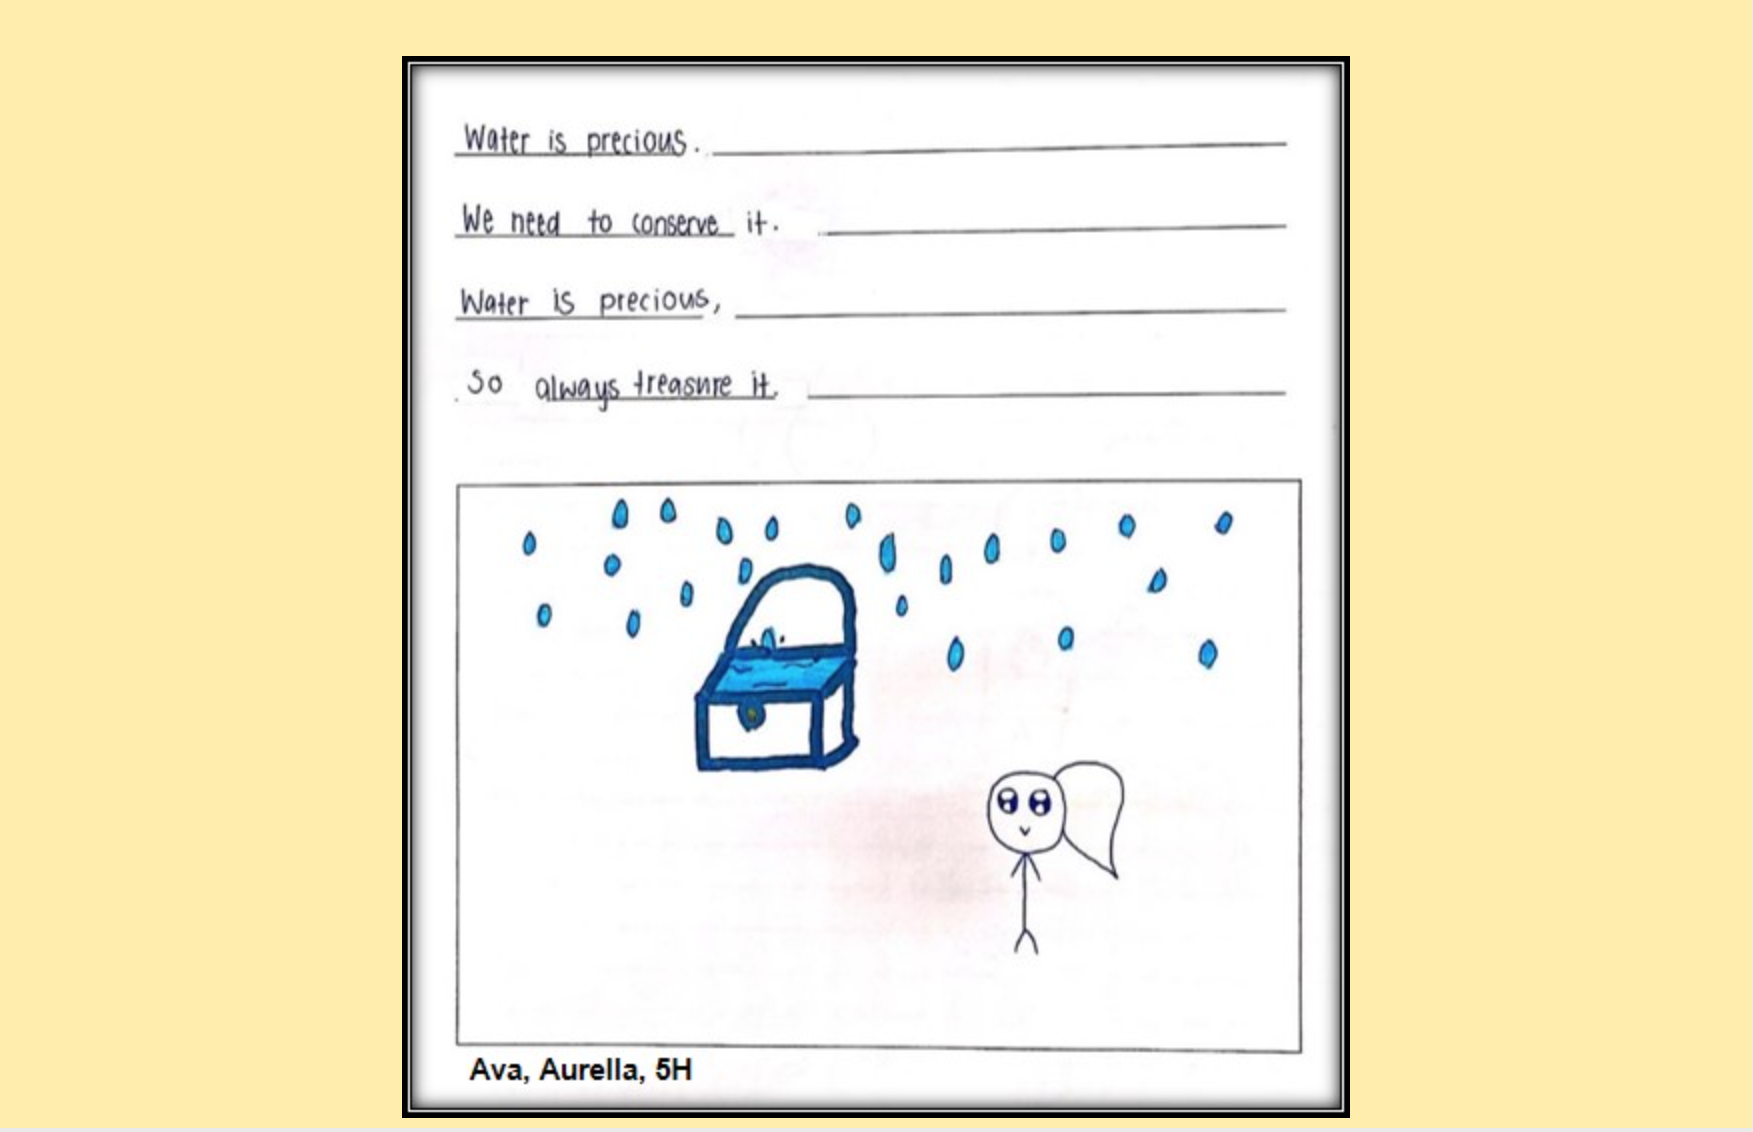 Water is precious.
We need to conserve it.
Water is precious,
So always treasure it.
Ava, Aurella, 5H